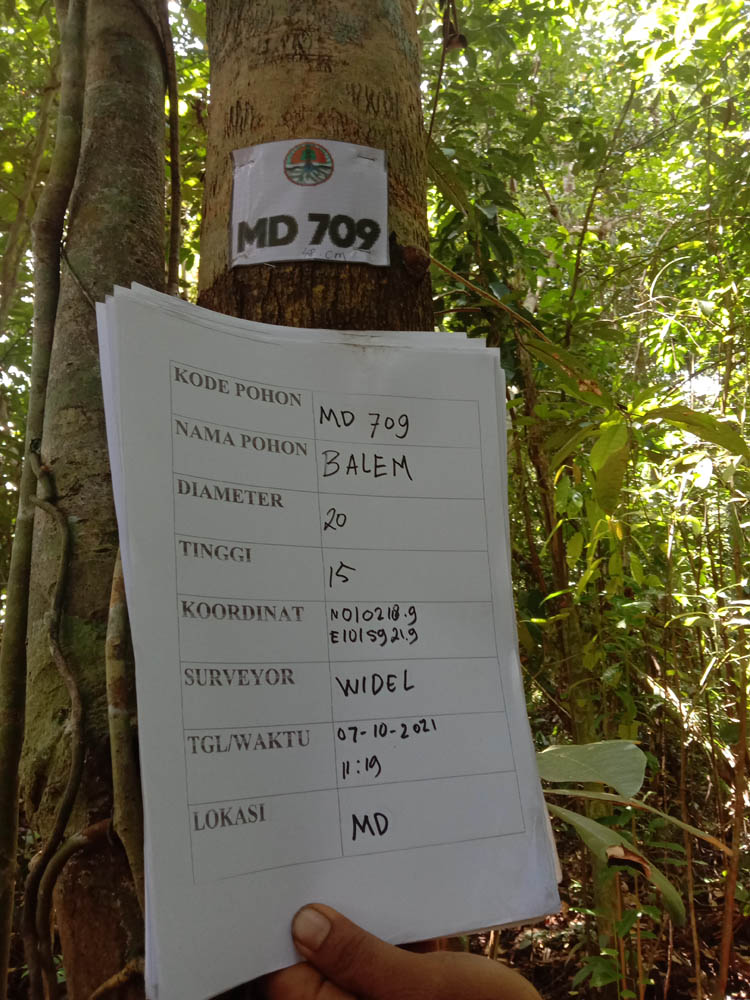 MD 709
KODE POHON
MD 709
NAMA POHON
BALEM
DIAMETER
20
TINGGI
15
KOORDINAT
N010218.9
E1015921.9
SURVEYOR
WIDEL
TGL/WAKTU
07-10-2021
11:19
LOKASI
MD